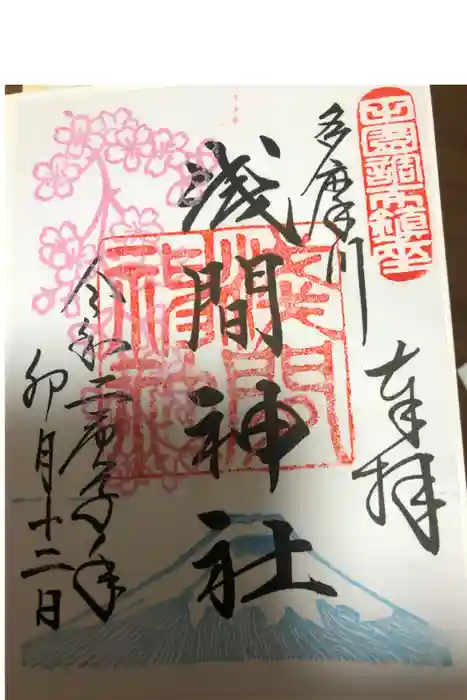 田園調布鎮座
奉拝
多摩川
浅間神社
浅間
神社
令和二庚子年
卯月十二日